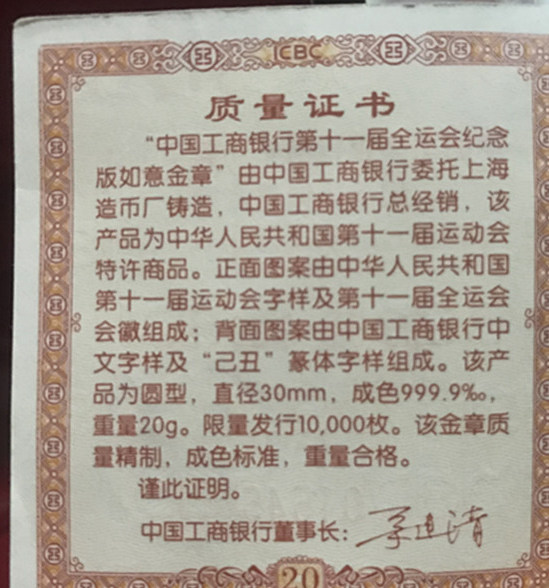 ICBC
质量证书
“中国工商银行第十一届全运会纪念
版如意金章”由中国工商银行委托上海
造币厂铸造，中国工商银行总经销，该
产品为中华人民共和国第十一届运动会
特许商品。正面图案由中华人民共和国
第十一届运动会字样及第十一届全运会
会徽组成；背面图案由中国工商银行中
文字样及“己丑”篆体字样组成。该产
品为圆型，直径30mm，成色999.9‰，
重量20g。限量发行10,000枚。该金章质
量精制，成色标准，重量合格。
谨此证明。
中国工商银行董事长：
20